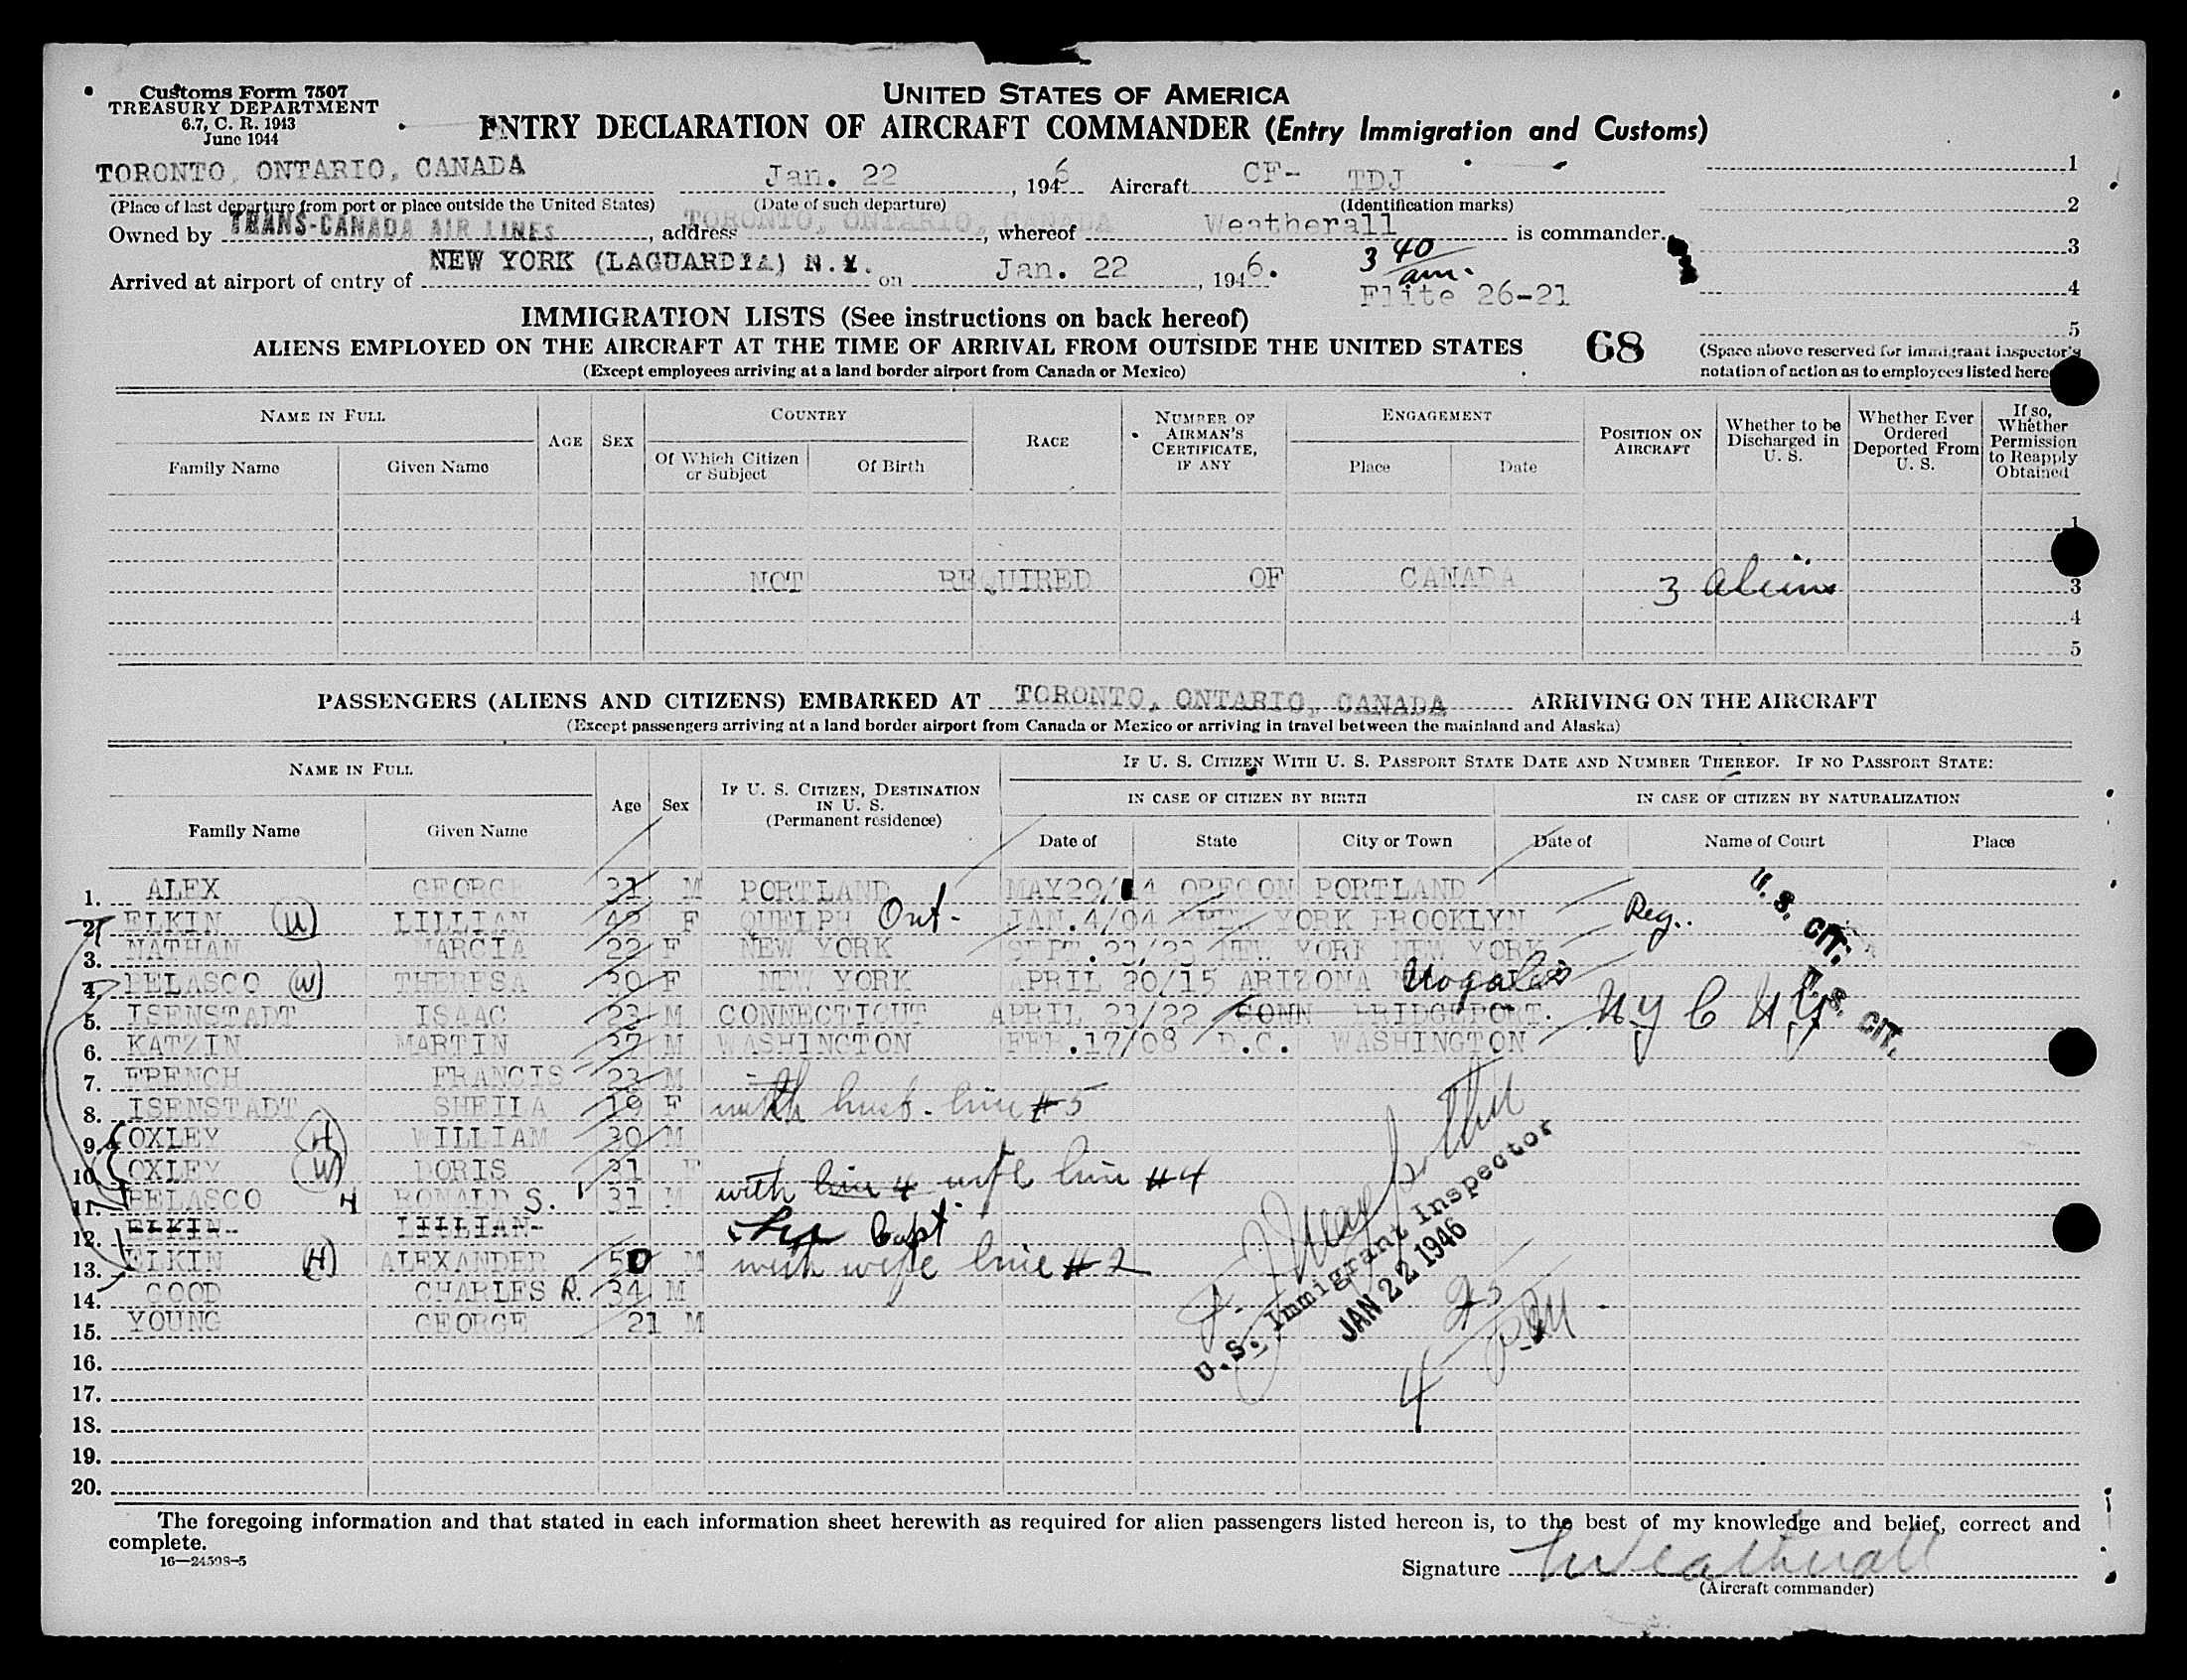 Customs Form 7507
TREASURY DEPARTMENT
6.7, C. R. 1943
June 1944
UNITED STATES OF AMERICA
ENTRY DECLARATION OF AIRCRAFT COMMANDER (Entry Immigration and Customs)
TORONTO, ONTARIO, CANADA Jan. 22, 1946 Aircraft CF- TDJ 1
(Place of last departure from port or place outside the United States) (Date of such departure) (Identification marks) 2
Owned by TRANS-CANADA AIR LINES, address TORONTO, ONTARIO, CANADA, whereof Weatherall is commander. 3
Arrived at airport of entry of NEW YORK (LAGUARDIA) N.Y. on Jan. 22, 1946. 3 40 am. 4
Flite 26-21
IMMIGRATION LISTS (See instructions on back hereof) 5
ALIENS EMPLOYED ON THE AIRCRAFT AT THE TIME OF ARRIVAL FROM OUTSIDE THE UNITED STATES 68 (Space above reserved for immigrant inspector's
(Except employees arriving at a land border airport from Canada or Mexico) notation of action as to employees listed here
NAME IN FULL AGE SEX COUNTRY RACE NUMBER OF AIRMAN'S CERTIFICATE, IF ANY ENGAGEMENT POSITION ON AIRCRAFT Whether to be Discharged in U. S. Whether Ever Ordered Deported From U. S. If so, Whether Permission to Reapply Obtained
Family Name Given Name Of Which Citizen or Subject Of Birth Place Date
1
NOT REQUIRED OF CANADA 3 Aliens 3
4
5
PASSENGERS (ALIENS AND CITIZENS) EMBARKED AT TORONTO, ONTARIO, CANADA ARRIVING ON THE AIRCRAFT
(Except passengers arriving at a land border airport from Canada or Mexico or arriving in travel between the mainland and Alaska)
NAME IN FULL Age Sex IF U. S. CITIZEN, DESTINATION IN U. S. (Permanent residence) IF U. S. CITIZEN WITH U. S. PASSPORT STATE DATE AND NUMBER THEREOF. IF NO PASSPORT STATE:
IN CASE OF CITIZEN BY BIRTH IN CASE OF CITIZEN BY NATURALIZATION
Family Name Given Name Date of State City or Town Date of Name of Court Place
1. ALEX GEORGE 31 M PORTLAND MAY29/14 OREGON PORTLAND U. S. CIT.
2. ELKIN (W) LILLIAN 42 F QUELPH Ont. JAN.4/04 NEW YORK BROOKLYN Reg.
3. NATHAN MARCIA 22 F NEW YORK SEPT.23/23 NEW YORK NEW YORK
4. BELASCO (W) THERESA 30 F NEW YORK APRIL 20/15 ARIZONA Nogales U. S. CIT.
5. ISENSTADT ISAAC 23 M CONNECTICUT APRIL 23/22 CONN BRIDGEPORT. N Y C N Y
6. KATZIN MARTIN 37 M WASHINGTON FEB.17/08 D.C. WASHINGTON
7. FRENCH FRANCIS 23 M
8. ISENSTADT SHEILA 19 F with husb. line #5
9. OXLEY (H) WILLIAM 30 M
10. OXLEY (W) DORIS 31 F
11. BELASCO H RONALD S. 31 M with line 4 wife line #4
12. ELKIN LILLIAN
13. ELKIN (H) ALEXANDER 50 M with wife line #2
14. GOOD CHARLES R. 34 M
15. YOUNG GEORGE 21 M
U. S. Immigrant Inspector
JAN 22 1946
16.
17.
18.
19.
20.
The foregoing information and that stated in each information sheet herewith as required for alien passengers listed hereon is, to the best of my knowledge and belief, correct and
complete.
16—24598-5
Signature Weatherall
(Aircraft commander)